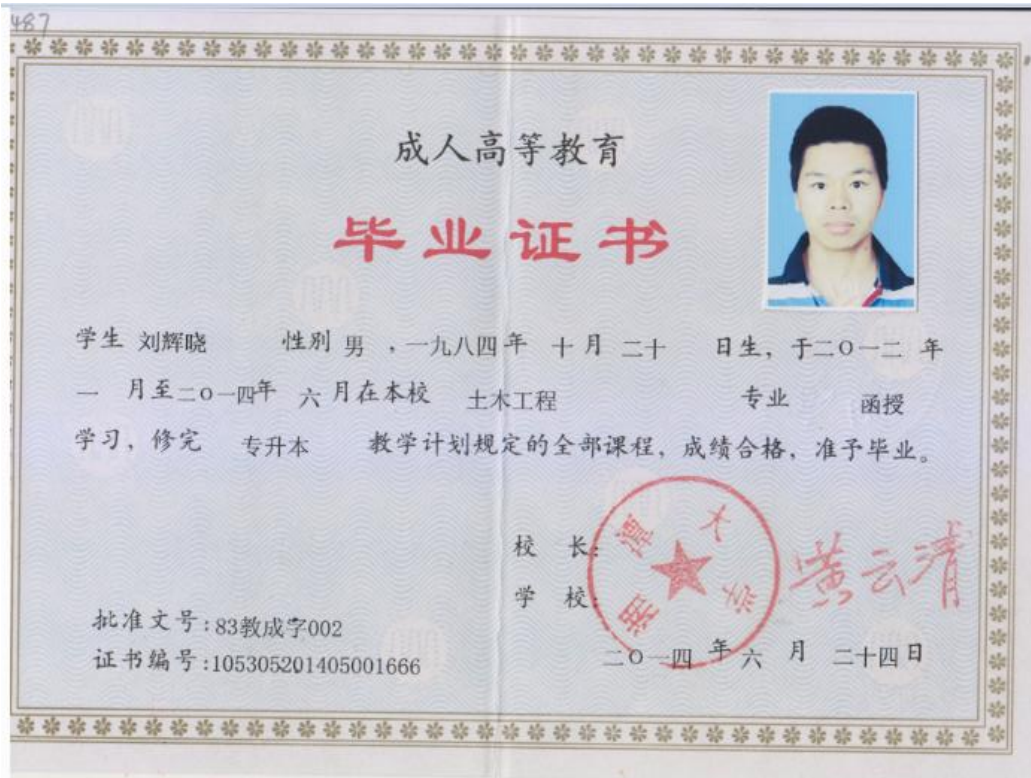 487
成人高等教育
毕业证书
学生 刘辉晓 性别 男 ，一九八四年 十月 二十 日生，于二〇一二 年
一 月至二〇一四年 六月在本校 土木工程 专业 函授
学习，修完 专升本 教学计划规定的全部课程，成绩合格，准予毕业。
校 长：
黄云清
学 校：
湘潭大学
批准文号：83教成字002
证书编号：105305201405001666
二〇一四 年 六 月 二十四日